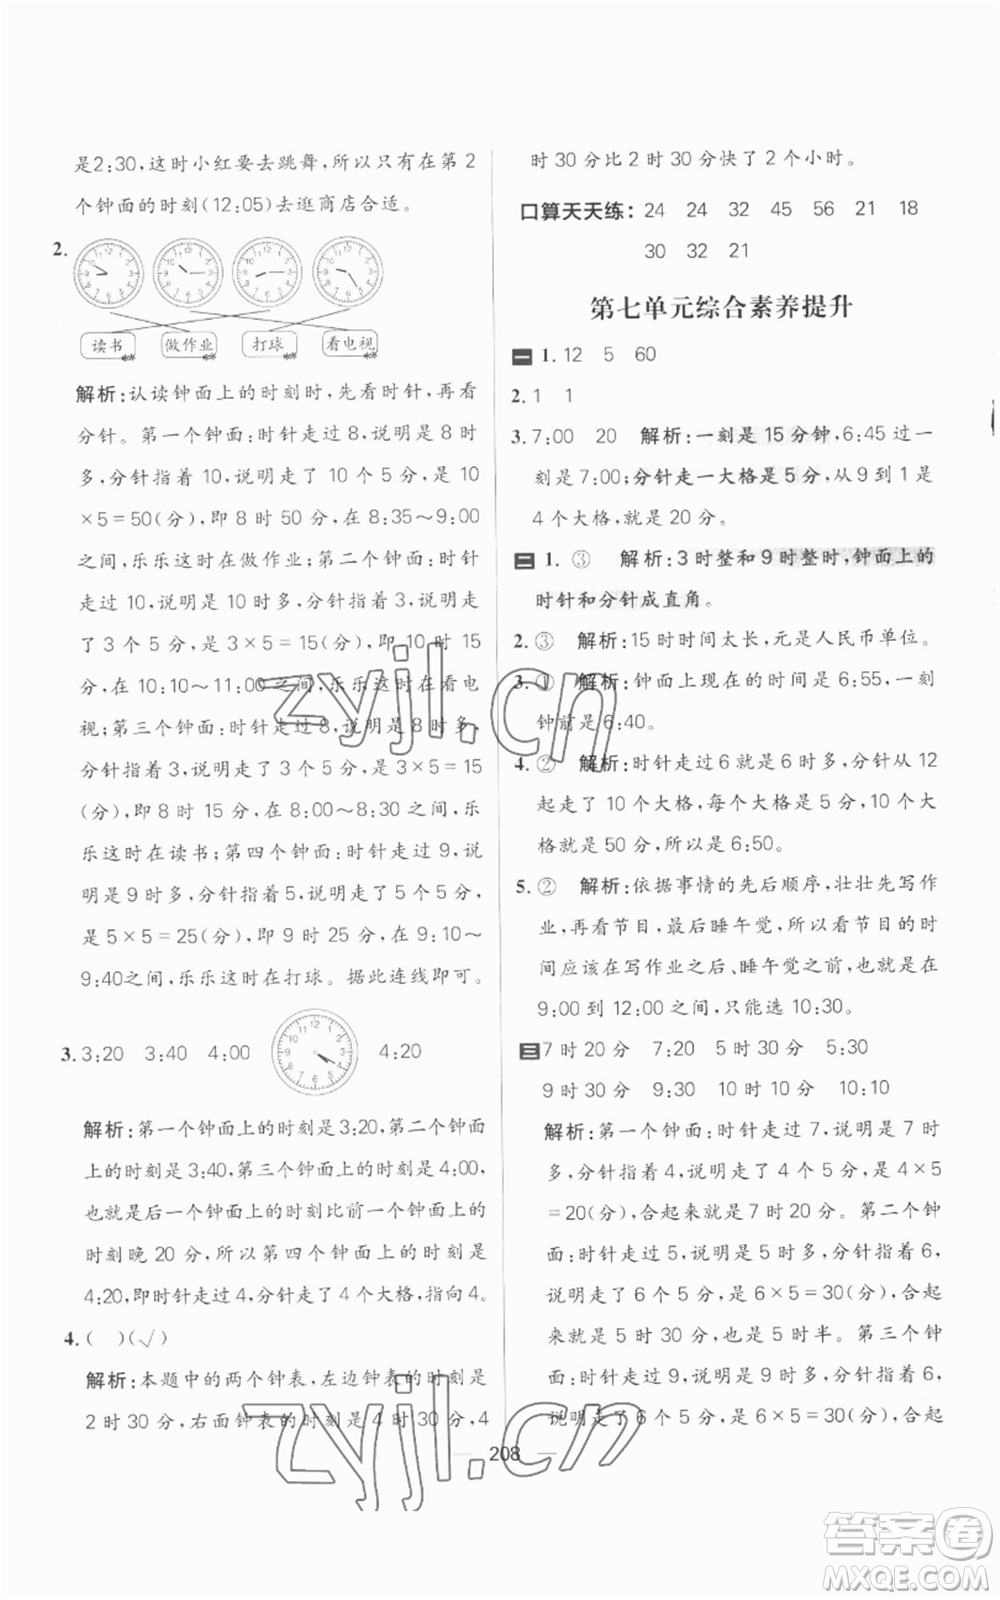 是2:30,这时小红要去跳舞,所以只有在第2
个钟面的时刻(12:05)去逛商店合适。
2.
读书 做作业 打球 看电视
解析:认读钟面上的时刻时,先看时针,再看
分针。第一个钟面:时针走过8,说明是8时
多,分针指着10,说明走了10个5分,是10
×5=50(分),即8时50分,在8:35~9:00
之间,乐乐这时在做作业;第二个钟面:时针
走过10,说明是10时多,分针指着3,说明走
了3个5分,是3×5=15(分),即10时15
分,在10:10~11:00之间,乐乐这时在看电
视;第三个钟面:时针走过8,说明是8时多,
分针指着3,说明走了3个5分,是3×5=15
(分),即8时15分,在8:00~8:30之间,乐
乐这时在读书;第四个钟面:时针走过9,说
明是9时多,分针指着5,说明走了5个5分,
是5×5=25(分),即9时25分,在9:10~
9:40之间,乐乐这时在打球。据此连线即可。
3. 3:20 3:40 4:00 4:20
解析:第一个钟面上的时刻是3:20,第二个钟面
上的时刻是3:40,第三个钟面上的时刻是4:00,
也就是后一个钟面上的时刻比前一个钟面上的
时刻晚20分,所以第四个钟面上的时刻是
4:20,即时针走过4,分针走了4个大格,指向4。
4. ( )(√)
解析:本题中的两个钟表,左边钟表的时刻是
2时30分,右面钟表的时刻是4时30分,4
时30分比2时30分快了2个小时。
口算天天练: 24 24 32 45 56 21 18
30 32 21
第七单元综合素养提升
一 1. 12 5 60
2. 1 1
3. 7:00 20 解析:一刻是15分钟,6:45过一
刻是7:00;分针走一大格是5分,从9到1是
4个大格,就是20分。
二 1. ③ 解析:3时整和9时整时,钟面上的
时针和分针成直角。
2. ③ 解析:15时时间太长,元是人民币单位。
3. ① 解析:钟面上现在的时间是6:55,一刻
钟前是6:40。
4. ② 解析:时针走过6就是6时多,分针从12
起走了10个大格,每个大格是5分,10个大
格就是50分,所以是6:50。
5. ② 解析:依据事情的先后顺序,壮壮先写作
业,再看节目,最后睡午觉,所以看节目的时
间应该在写作业之后、睡午觉之前,也就是在
9:00到12:00之间,只能选10:30。
三 7时20分 7:20 5时30分 5:30
9时30分 9:30 10时10分 10:10
解析:第一个钟面:时针走过7,说明是7时
多,分针指着4,说明走了4个5分,是4×5
=20(分),合起来就是7时20分。第二个钟
面:时针走过5,说明是5时多,分针指着6,
说明走了6个5分,是6×5=30(分),合起
来就是5时30分,也是5时半。第三个钟
面:时针走过9,说明是9时多,分针指着6,
说明走了6个5分,是6×5=30(分),合起
208
zyjl.cn
zyjl.cn
答案圈
MXQE.COM